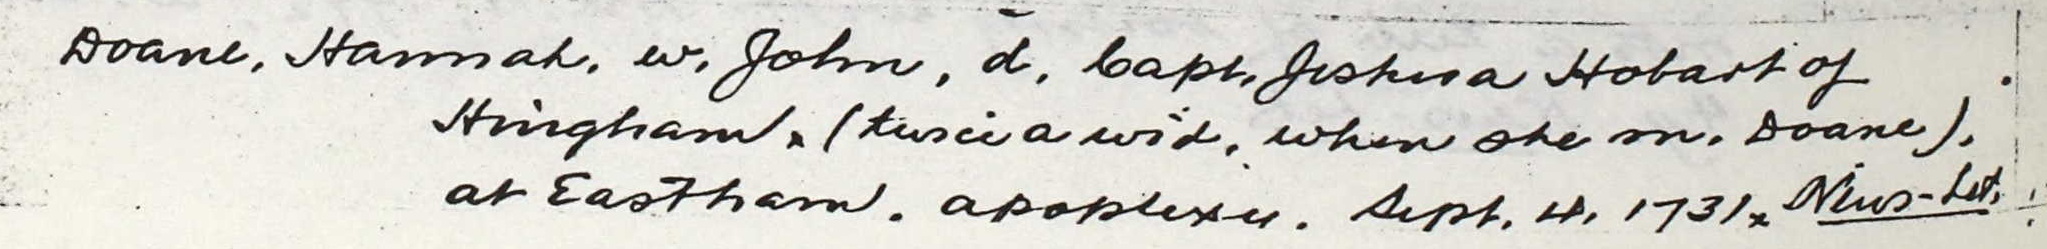 Doane, Hannah, w. John, d. Capt. Joshua Hobart of
Hingham, (twice a wid. when she m. Doane),
at Eastham. apoplexy. Sept. 4, 1731, News-Let.